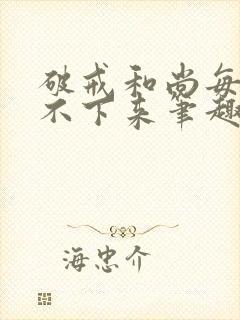 破戒和尚每
不下来笔趣
海忠介